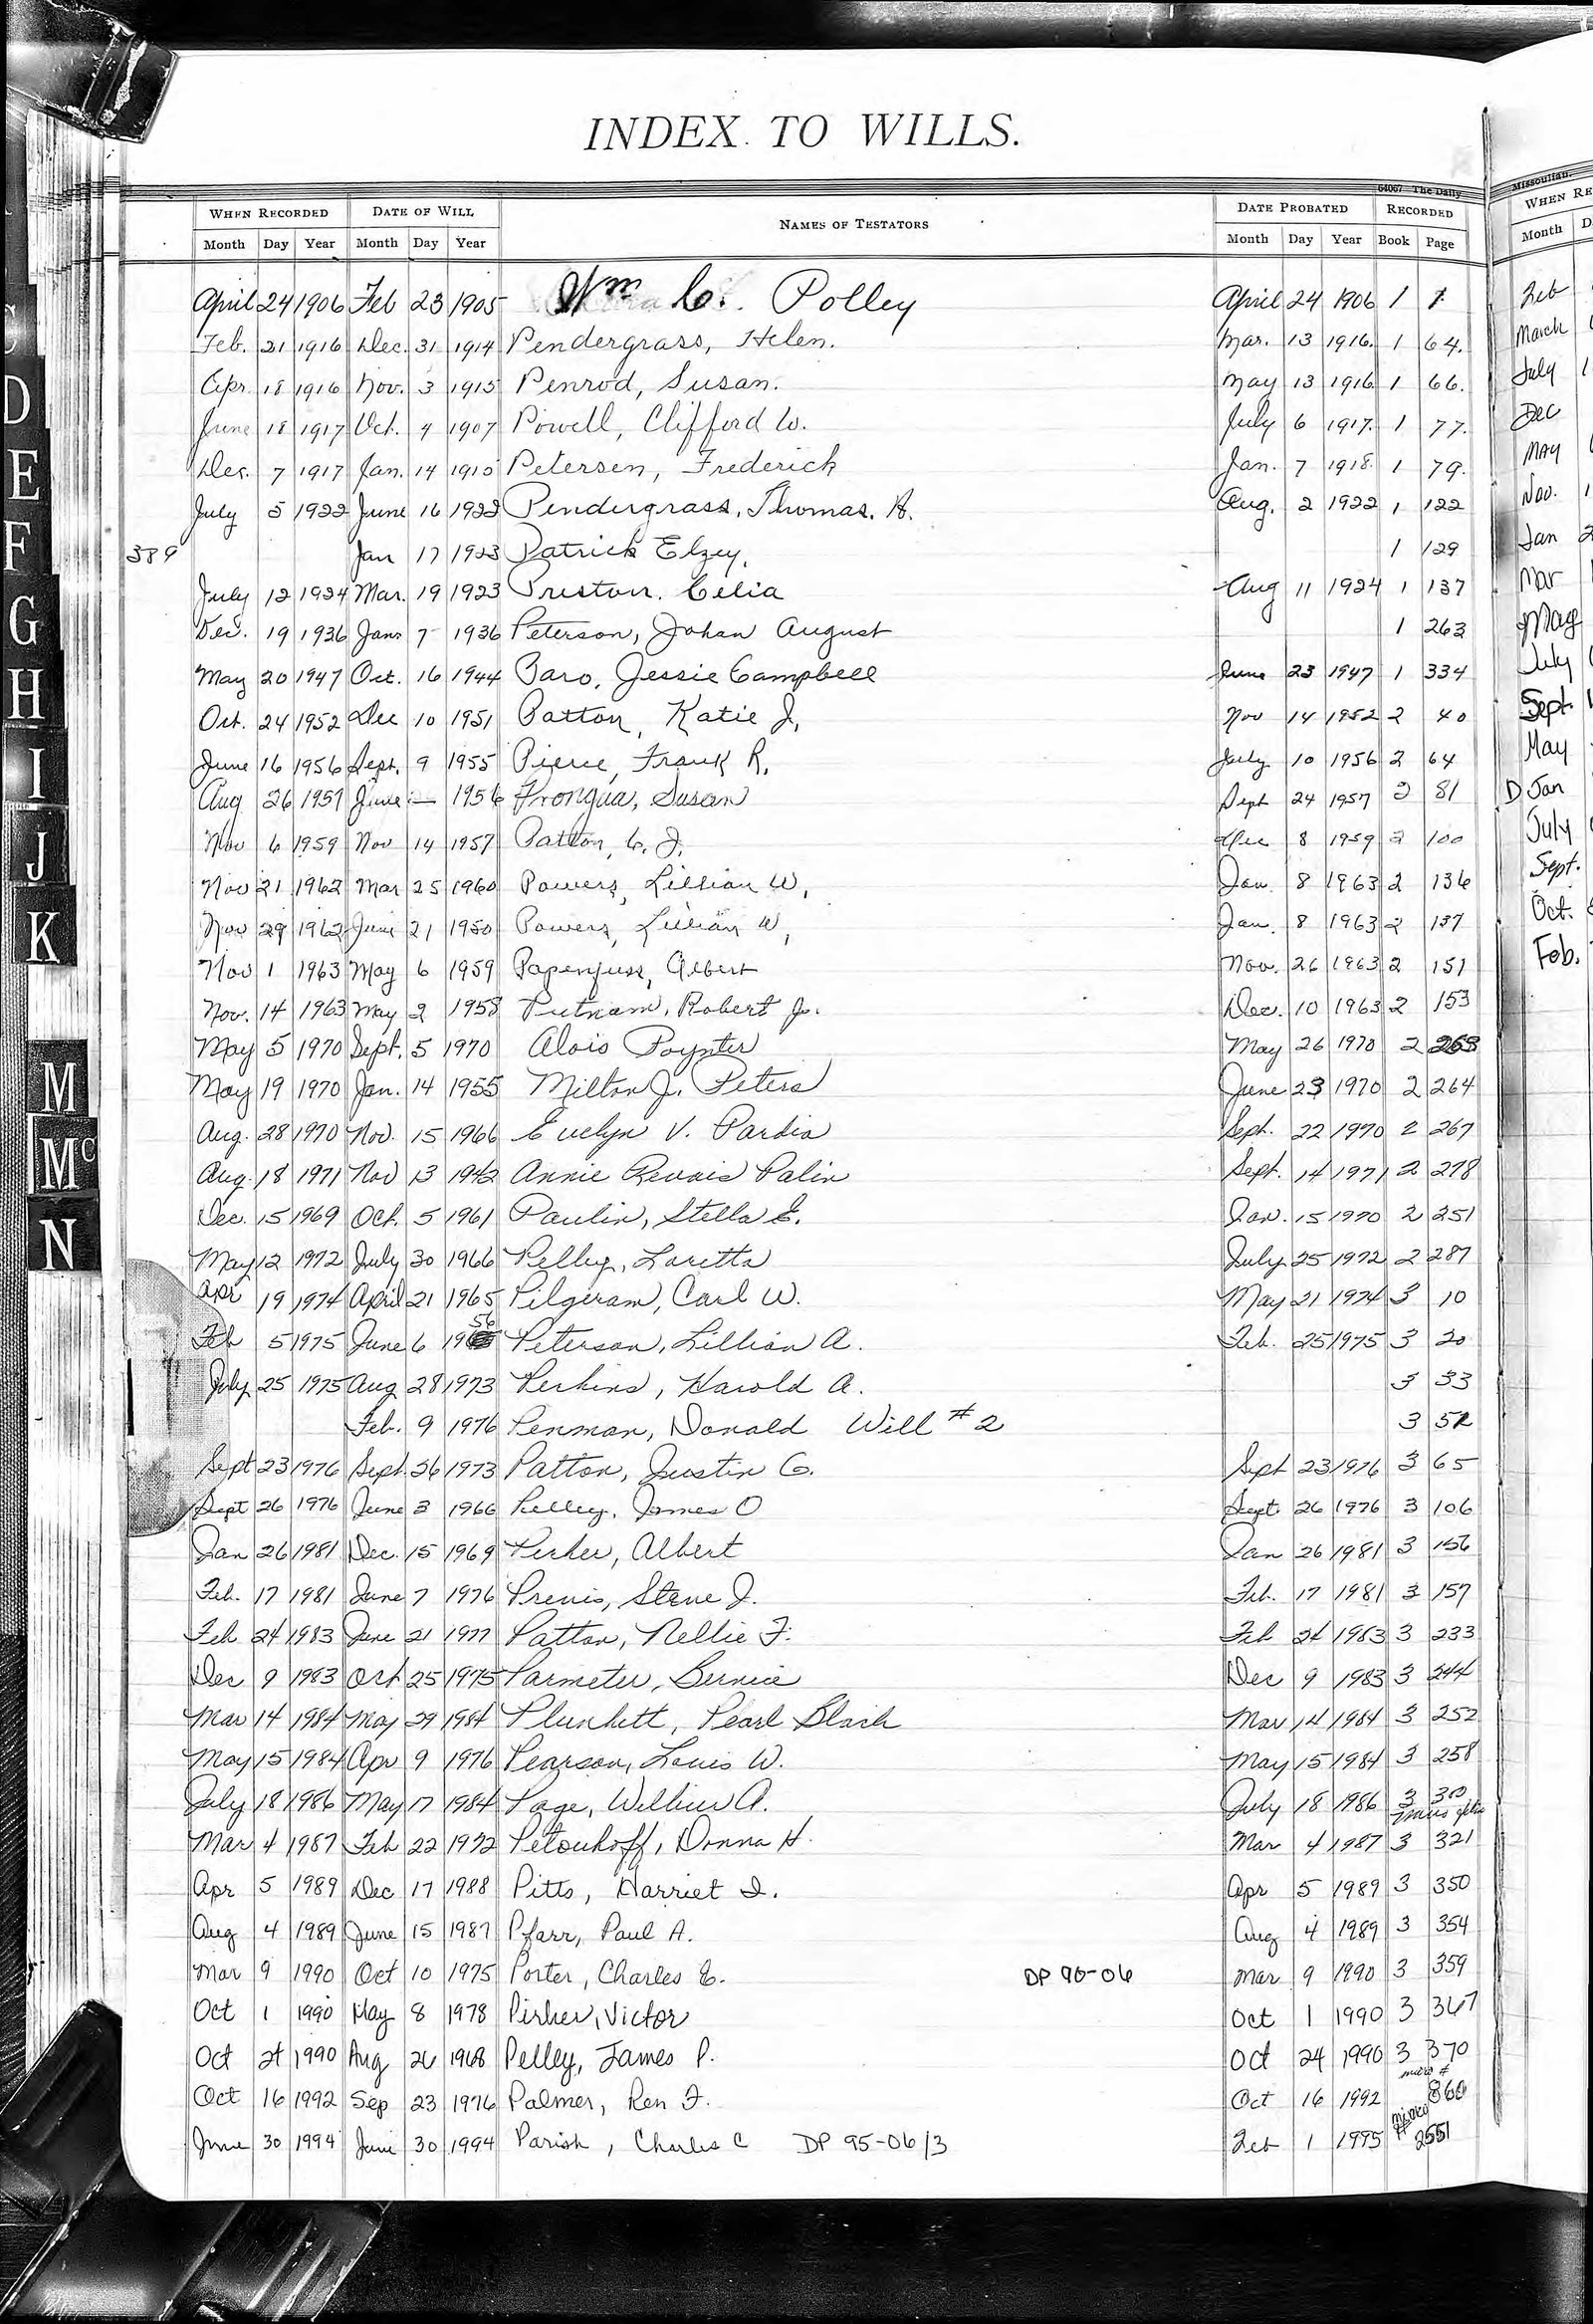 INDEX TO WILLS.
64067 The Daily Missoulian.
WHEN RECORDED DATE OF WILL NAMES OF TESTATORS DATE PROBATED RECORDED
Month Day Year Month Day Year Month Day Year Book Page
April 24 1906 Feb 23 1905 Wm C. Polley April 24 1906 1 1
Feb. 21 1916 Dec. 31 1914 Pendergrass, Helen. Mar. 13 1916. 1 64.
Apr. 18 1916 Nov. 3 1915 Penrod, Susan. May 13 1916 1 66.
June 18 1917 Oct. 4 1907 Powell, Clifford W. July 6 1917. 1 77.
Dec. 7 1917 Jan. 14 1915 Petersen, Frederick Jan. 7 1918. 1 79.
July 5 1922 June 16 1922 Pendergrass, Thomas. H. Aug. 2 1922 1 122
389 Jan 17 1923 Patrick Elzey. 1 129
July 12 1924 Mar. 19 1923 Preston. Celia Aug 11 1924 1 137
Dec. 19 1936 Jan 7 1936 Peterson, Johan August 1 263
May 20 1947 Oct. 16 1944 Paro, Jessie Campbell June 23 1947 1 334
Oct. 24 1952 Dec 10 1951 Patton, Katie J. Nov 14 1952 2 40
June 16 1956 Sept. 9 1955 Pierce, Frank R. July 10 1956 2 64
Aug 26 1957 June — 1956 Prongua, Susan Sept 24 1957 2 81
Nov 6 1959 Nov 14 1957 Patton, C. J. Dec 8 1959 2 100
Nov 21 1962 Mar 25 1960 Powers, Lillian W. Jan. 8 1963 2 136
Nov 29 1962 June 21 1950 Powers, Lillian W. Jan. 8 1963 2 137
Nov 1 1963 May 6 1959 Papenfuss, Albert Nov. 26 1963 2 151
Nov. 14 1963 May 2 1958 Putnam, Robert Jr. Dec. 10 1963 2 153
May 5 1970 Sept. 5 1970 Alois Poynter May 26 1970 2 263
May 19 1970 Jan. 14 1955 Milton J. Peters June 23 1970 2 264
Aug. 28 1970 Nov. 15 1966 Evelyn V. Pardis Sept. 22 1970 2 267
Aug. 18 1971 Nov 13 1942 Annie Revais Palin Sept. 14 1971 2 278
Dec. 15 1969 Oct. 5 1961 Paulin, Stella E. Jan. 15 1970 2 251
May 12 1972 July 30 1966 Pelley, Loretta July 25 1972 2 287
Apr 19 1974 April 21 1965 Pilgeram, Carl W. May 21 1974 3 10
Feb 5 1975 June 6 1956 Peterson, Lillian A. Feb. 25 1975 3 20
July 25 1975 Aug 28 1973 Perkins, Harold A. 3 33
Feb. 9 1976 Penman, Donald Will #2 3 52
Sept 23 1976 Sept. 26 1973 Patton, Justin G. Sept 23 1976 3 65
Sept 26 1976 June 3 1966 Pelley, James O Sept 26 1976 3 106
Jan 26 1981 Dec. 15 1969 Pirker, Albert Jan 26 1981 3 156
Feb. 17 1981 June 7 1976 Previs, Steve J. Feb. 17 1981 3 157
Feb 24 1983 June 21 1977 Patton, Nellie F. Feb 24 1983 3 233
Dec 9 1983 Oct 25 1975 Parmeter, Bernice Dec 9 1983 3 244
Mar 14 1984 May 29 1984 Plunkett, Pearl Black Mar 14 1984 3 252
May 15 1984 Apr 9 1976 Pearson, Louis W. May 15 1984 3 258
July 18 1986 May 17 1984 Page, Wilbur A. July 18 1986 3 310
Mar 4 1987 Feb 22 1972 Petoukoff, Donna H. Mar 4 1987 3 321
Apr 5 1989 Dec 17 1988 Pitts, Harriet I. Apr 5 1989 3 350
Aug 4 1989 June 15 1987 Pfarr, Paul A. Aug 4 1989 3 354
Mar 9 1990 Oct 10 1975 Porter, Charles E. DP 90-06 Mar 9 1990 3 359
Oct 1 1990 May 8 1978 Pirker, Victor Oct 1 1990 3 367
Oct 24 1990 Aug 26 1968 Pelley, James P. Oct 24 1990 3 370
Oct 16 1992 Sep 23 1976 Palmer, Ren F. Oct 16 1992 micro # 860
June 30 1994 June 30 1994 Parish, Charles C DP 95-06/3 Feb 1 1995 micro # 2551
WHEN RE
Month D
Feb
March
July
Dec
May
Nov.
Jan
Mar
May
July
Sept.
May
D Jan
July
Sept.
Oct.
Feb.
C
D
E
F
G
H
I
J
K
M
Mc
N